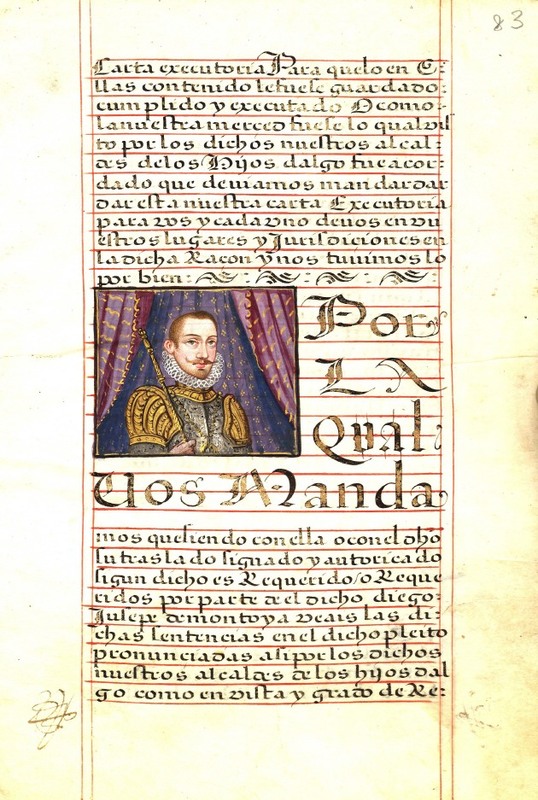 83
Carta executoria Para que lo en E=
llas contenido lefuese guardado=
cumplido y executado O como=
la nuestra merced fuese lo qual vis
to por los dichos nuestros alcal=
des de los Hijos dalgo fue acor=
dado que deviamos mandar dar
dar esta nuestra carta Executoria
para vos y cada vno devos en vu
estros lugares y Jurisdiciones en
la dicha Raçon y nos tuvimos lo
por bien:
Por
LA
Qual:
Uos Manda
mos que siendo con ella o con el dho
su traslado signado y autoricado
sigun dicho es Requerido/o Reque
ridos por parte de el dicho diego=
Jusepe de montoya veais las di=
chas sentencias en el dicho pleito
pronunciadas asi por los dichos
nuestros alcaldes de los hijos dal
go como en vista y grado de Re=